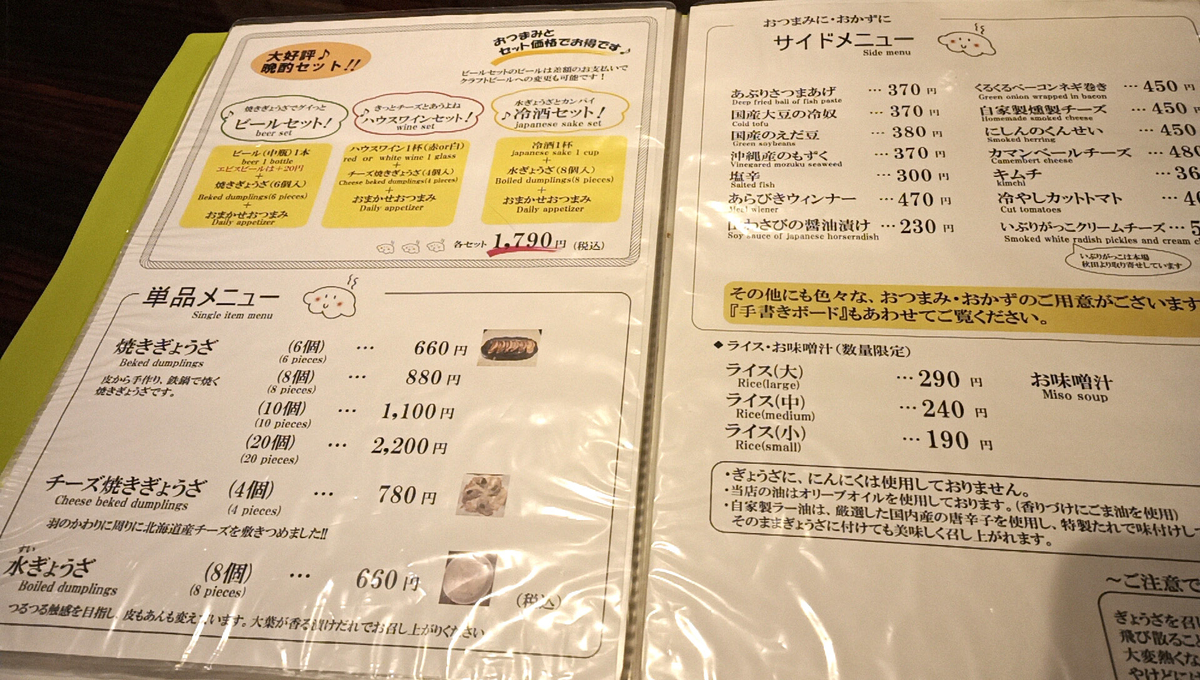 大好評♪
晩酌セット!!
おつまみと
セット価格でお得です♪
ビールセットのビールは差額のお支払いで
クラフトビールへの変更も可能です！
焼きぎょうざでグイっと
ビールセット!
beer set
ビール(中瓶)1本
beer 1 bottle
エビスビールは+20円
+
焼きぎょうざ(6個入)
Beked dumplings(6 pieces)
+
おまかせおつまみ
Daily appetizer
きっとチーズとあうよね
ハウスワインセット!
wine set
ハウスワイン1杯(赤or白)
red or white wine 1 glass
+
チーズ焼きぎょうざ(4個入)
Cheese beked dumplings(4 pieces)
+
おまかせおつまみ
Daily appetizer
水ぎょうざとカンパイ
♪冷酒セット!
japanese sake set
冷酒1杯
japanese sake 1 cup
+
水ぎょうざ(8個入)
Boiled dumplings(8 pieces)
+
おまかせおつまみ
Daily appetizer
各セット 1,790円 (税込)
単品メニュー
Single item menu
焼きぎょうざ (6個) … 660円
Beked dumplings (6 pieces)
皮から手作り、鉄鍋で焼く
焼きぎょうざです。
(8個) … 880円
(8 pieces)
(10個) … 1,100円
(10 pieces)
(20個) … 2,200円
(20 pieces)
チーズ焼きぎょうざ (4個) … 780円
Cheese beked dumplings (4 pieces)
羽のかわりに周りに北海道産チーズを敷きつめました!!
すい
水ぎょうざ (8個) … 660円
Boiled dumplings (8 pieces)
(税込)
つるつる触感を目指し、皮もあんも変えています。大葉が香る漬けだれでお召し上がりください
おつまみに・おかずに
サイドメニュー
Side menu
あぶりさつまあげ … 370円
Deep fried ball of fish paste
国産大豆の冷奴 … 370円
Cold tofu
国産のえだ豆 … 380円
Green soybeans
沖縄産のもずく … 370円
Vinegared mozuku seaweed
塩辛 … 300円
Salted fish
あらびきウィンナー … 470円
wiener
わさびの醤油漬け … 230円
Soy sauce of japanese horseradish
くるくるベーコンネギ巻き … 450
Green onion wrapped in bacon
自家製燻製チーズ … 450
Homemade smoked cheese
にしんのくんせい … 450
Smoked herring
カマンベールチーズ … 480
Camembert cheese
キムチ … 36
kimchi
冷やしカットトマト …
Cut tomatoes
いぶりがっこクリームチーズ …
Smoked white radish pickles and cream
いぶりがっこは本場
秋田より取り寄せしています
その他にも色々な、おつまみ・おかずのご用意がございます
『手書きボード』もあわせてご覧ください。
◆ライス・お味噌汁(数量限定)
ライス(大) … 290円
Rice(large)
ライス(中) … 240円
Rice(medium)
ライス(小) … 190円
Rice(small)
お味噌汁
Miso soup
・ぎょうざに、にんにくは使用しておりません。
・当店の油はオリーブオイルを使用しております。(香りづけにごま油を使用)
・自家製ラー油は、厳選した国内産の唐辛子を使用し、特製たれで味付けし
そのままぎょうざに付けても美味しく召し上がれます。
～ご注意
ぎょうざを召
飛び散るこ
大変熱くな
やけどに